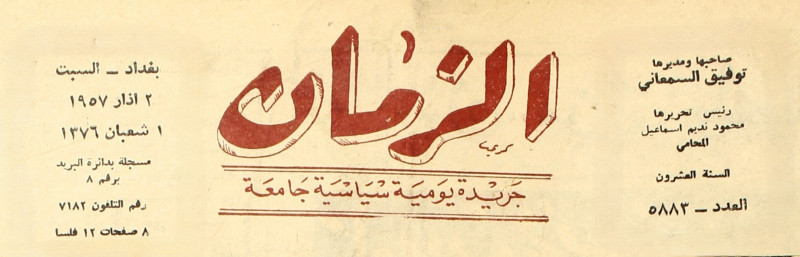 صاحبها ومديرها
توفيق السمعاني
رئيس تحريرها
محمود نديم اسماعيل
المحامي
السنة العشرون
العدد ــ ٥٨٨٣
الزمان
جريدة يومية سياسية جامعة
بغداد ــ السبت
٢ اذار ١٩٥٧
١ شعبان ١٣٧٦
مسجلة بدائرة البريد
برقم ٨
رقم التلفون ٧١٨٢
٨ صفحات ١٢ فلسا